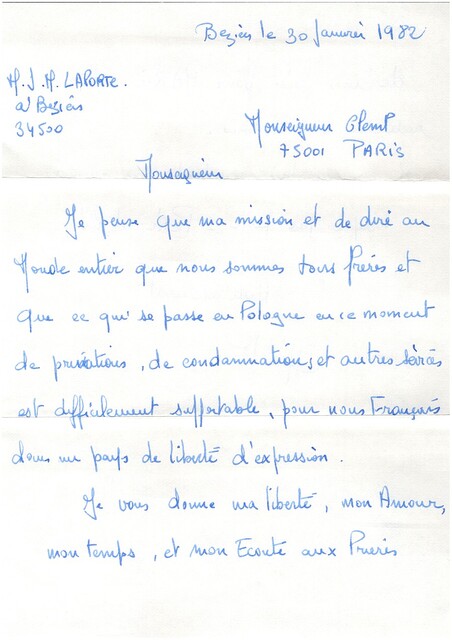 Beziés le 30 Janvier 1982
M. J. M. LAPORTE.
a' Beziés
34500
Monseigneur Glemp
75001 PARIS
Monseigneur
Je pense que ma mission et de dire au
Monde entier que nous sommes tous frères et
que ce qui se passe en Pologne en ce moment
de privations, de condamnations, et autres
est difficilement suportable, pour nous Français
dans un pays de liberté d'expression.
Je vous donne ma liberté, mon Amour,
mon temps, et mon Ecoute aux Prieres